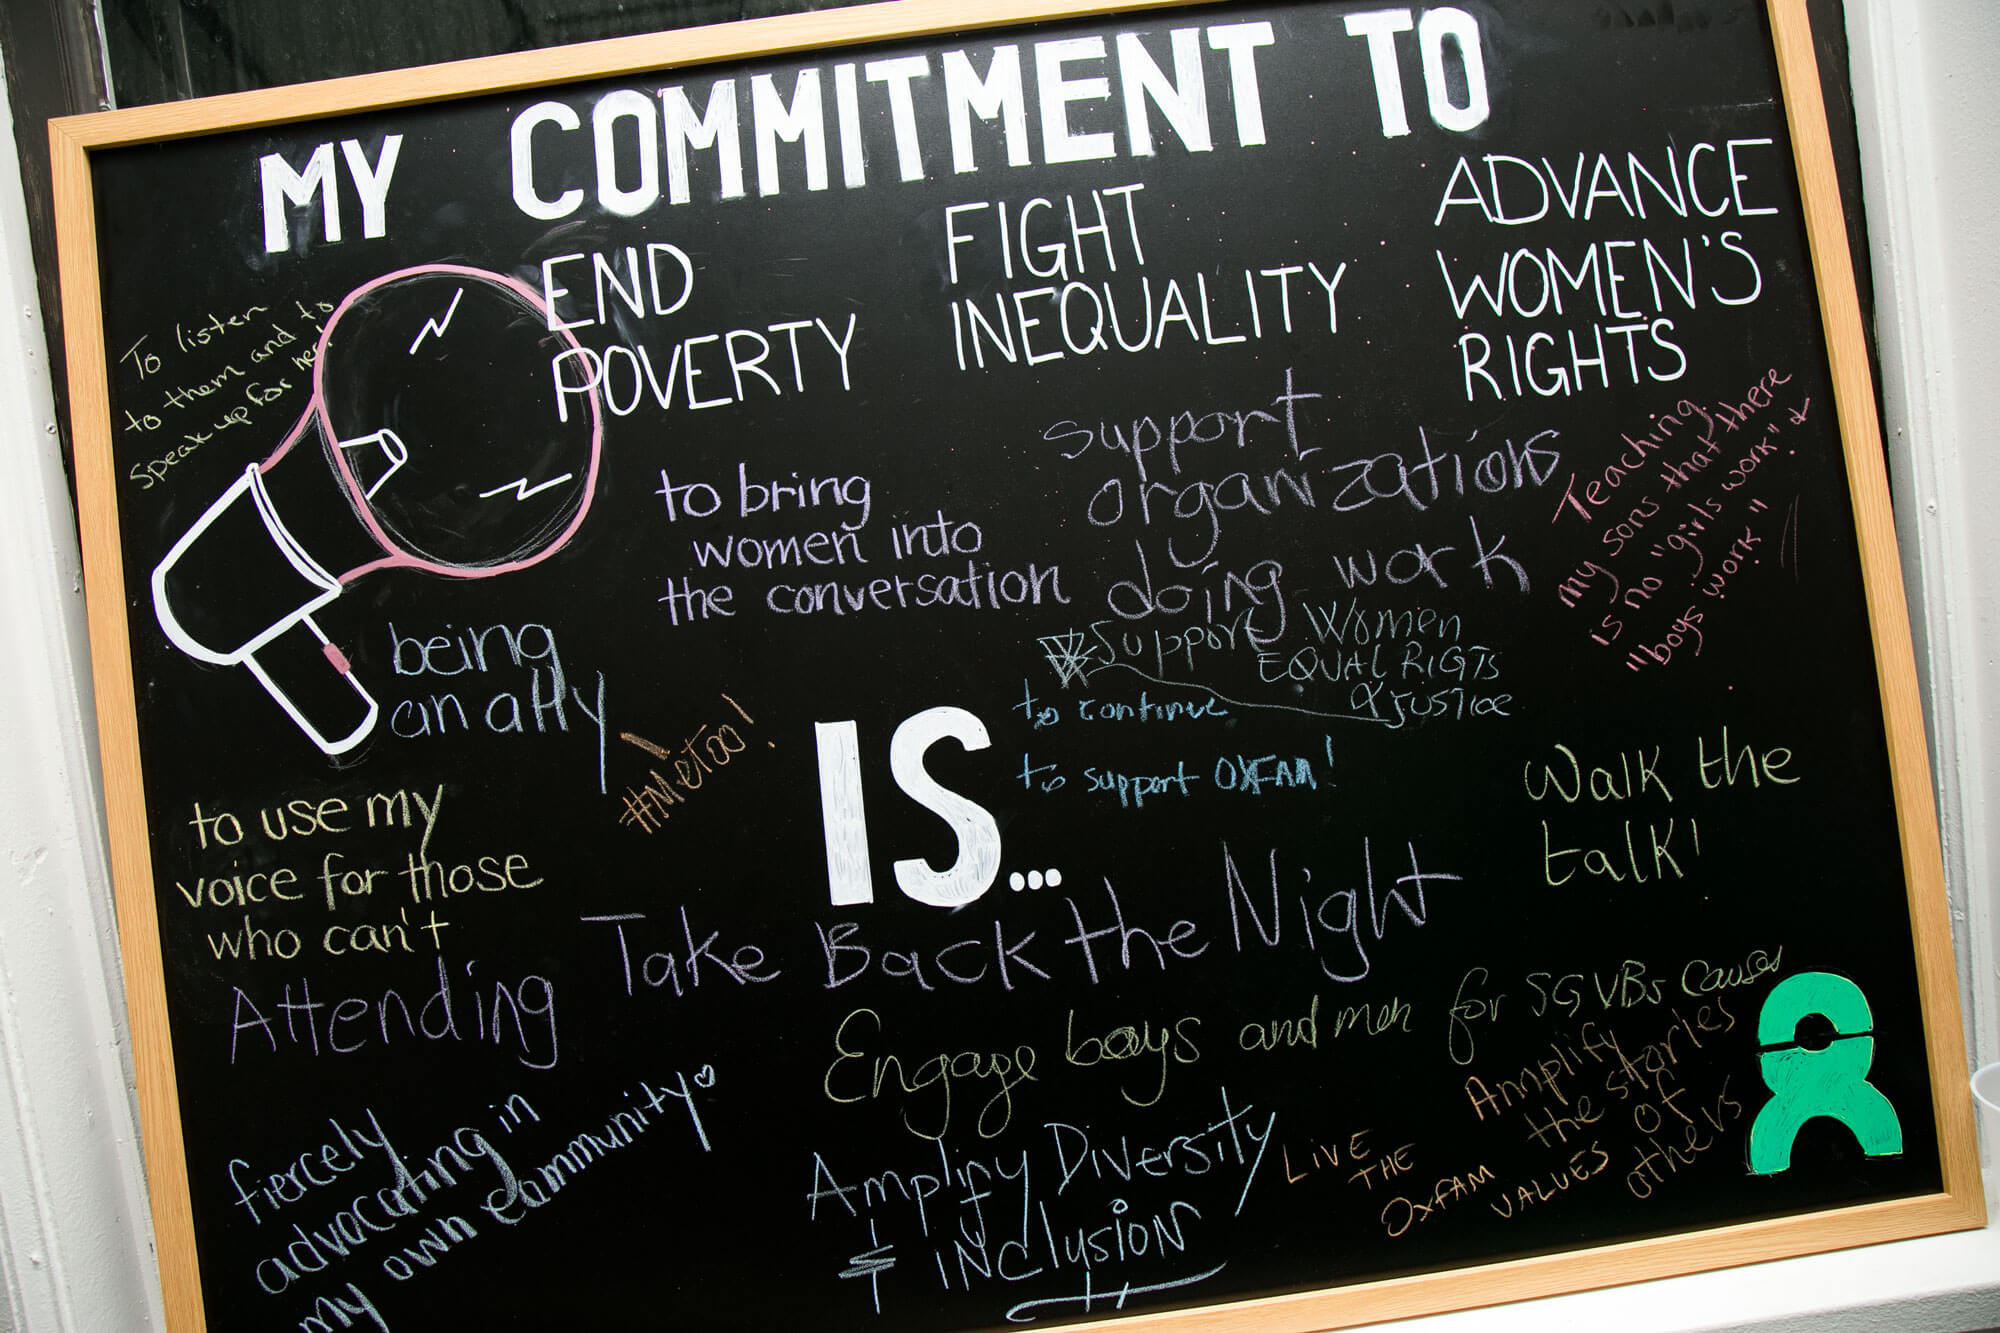 MY COMMITMENT TO
END
POVERTY
FIGHT
INEQUALITY
ADVANCE
WOMEN'S
RIGHTS
To listen
to them and to
speak up for her
to bring
women into
the conversation
support
organizations
doing work
Teaching
my sons that there
is no "girls work" &
"boys work"
Support Women
EQUAL RIGTS
& JUSTICE
being
an ally
#Metoo!
IS...
to continue
to support OXFAM!
Walk the
talk!
to use my
voice for those
who can't
Attending Take Back the Night
Engage boys and men for SGVBs causes
Amplify
the stories
of
others
fiercely
advocating in
my own community
Amplify Diversity
& inclusion
LIVE
THE
OXFAM
VALUES